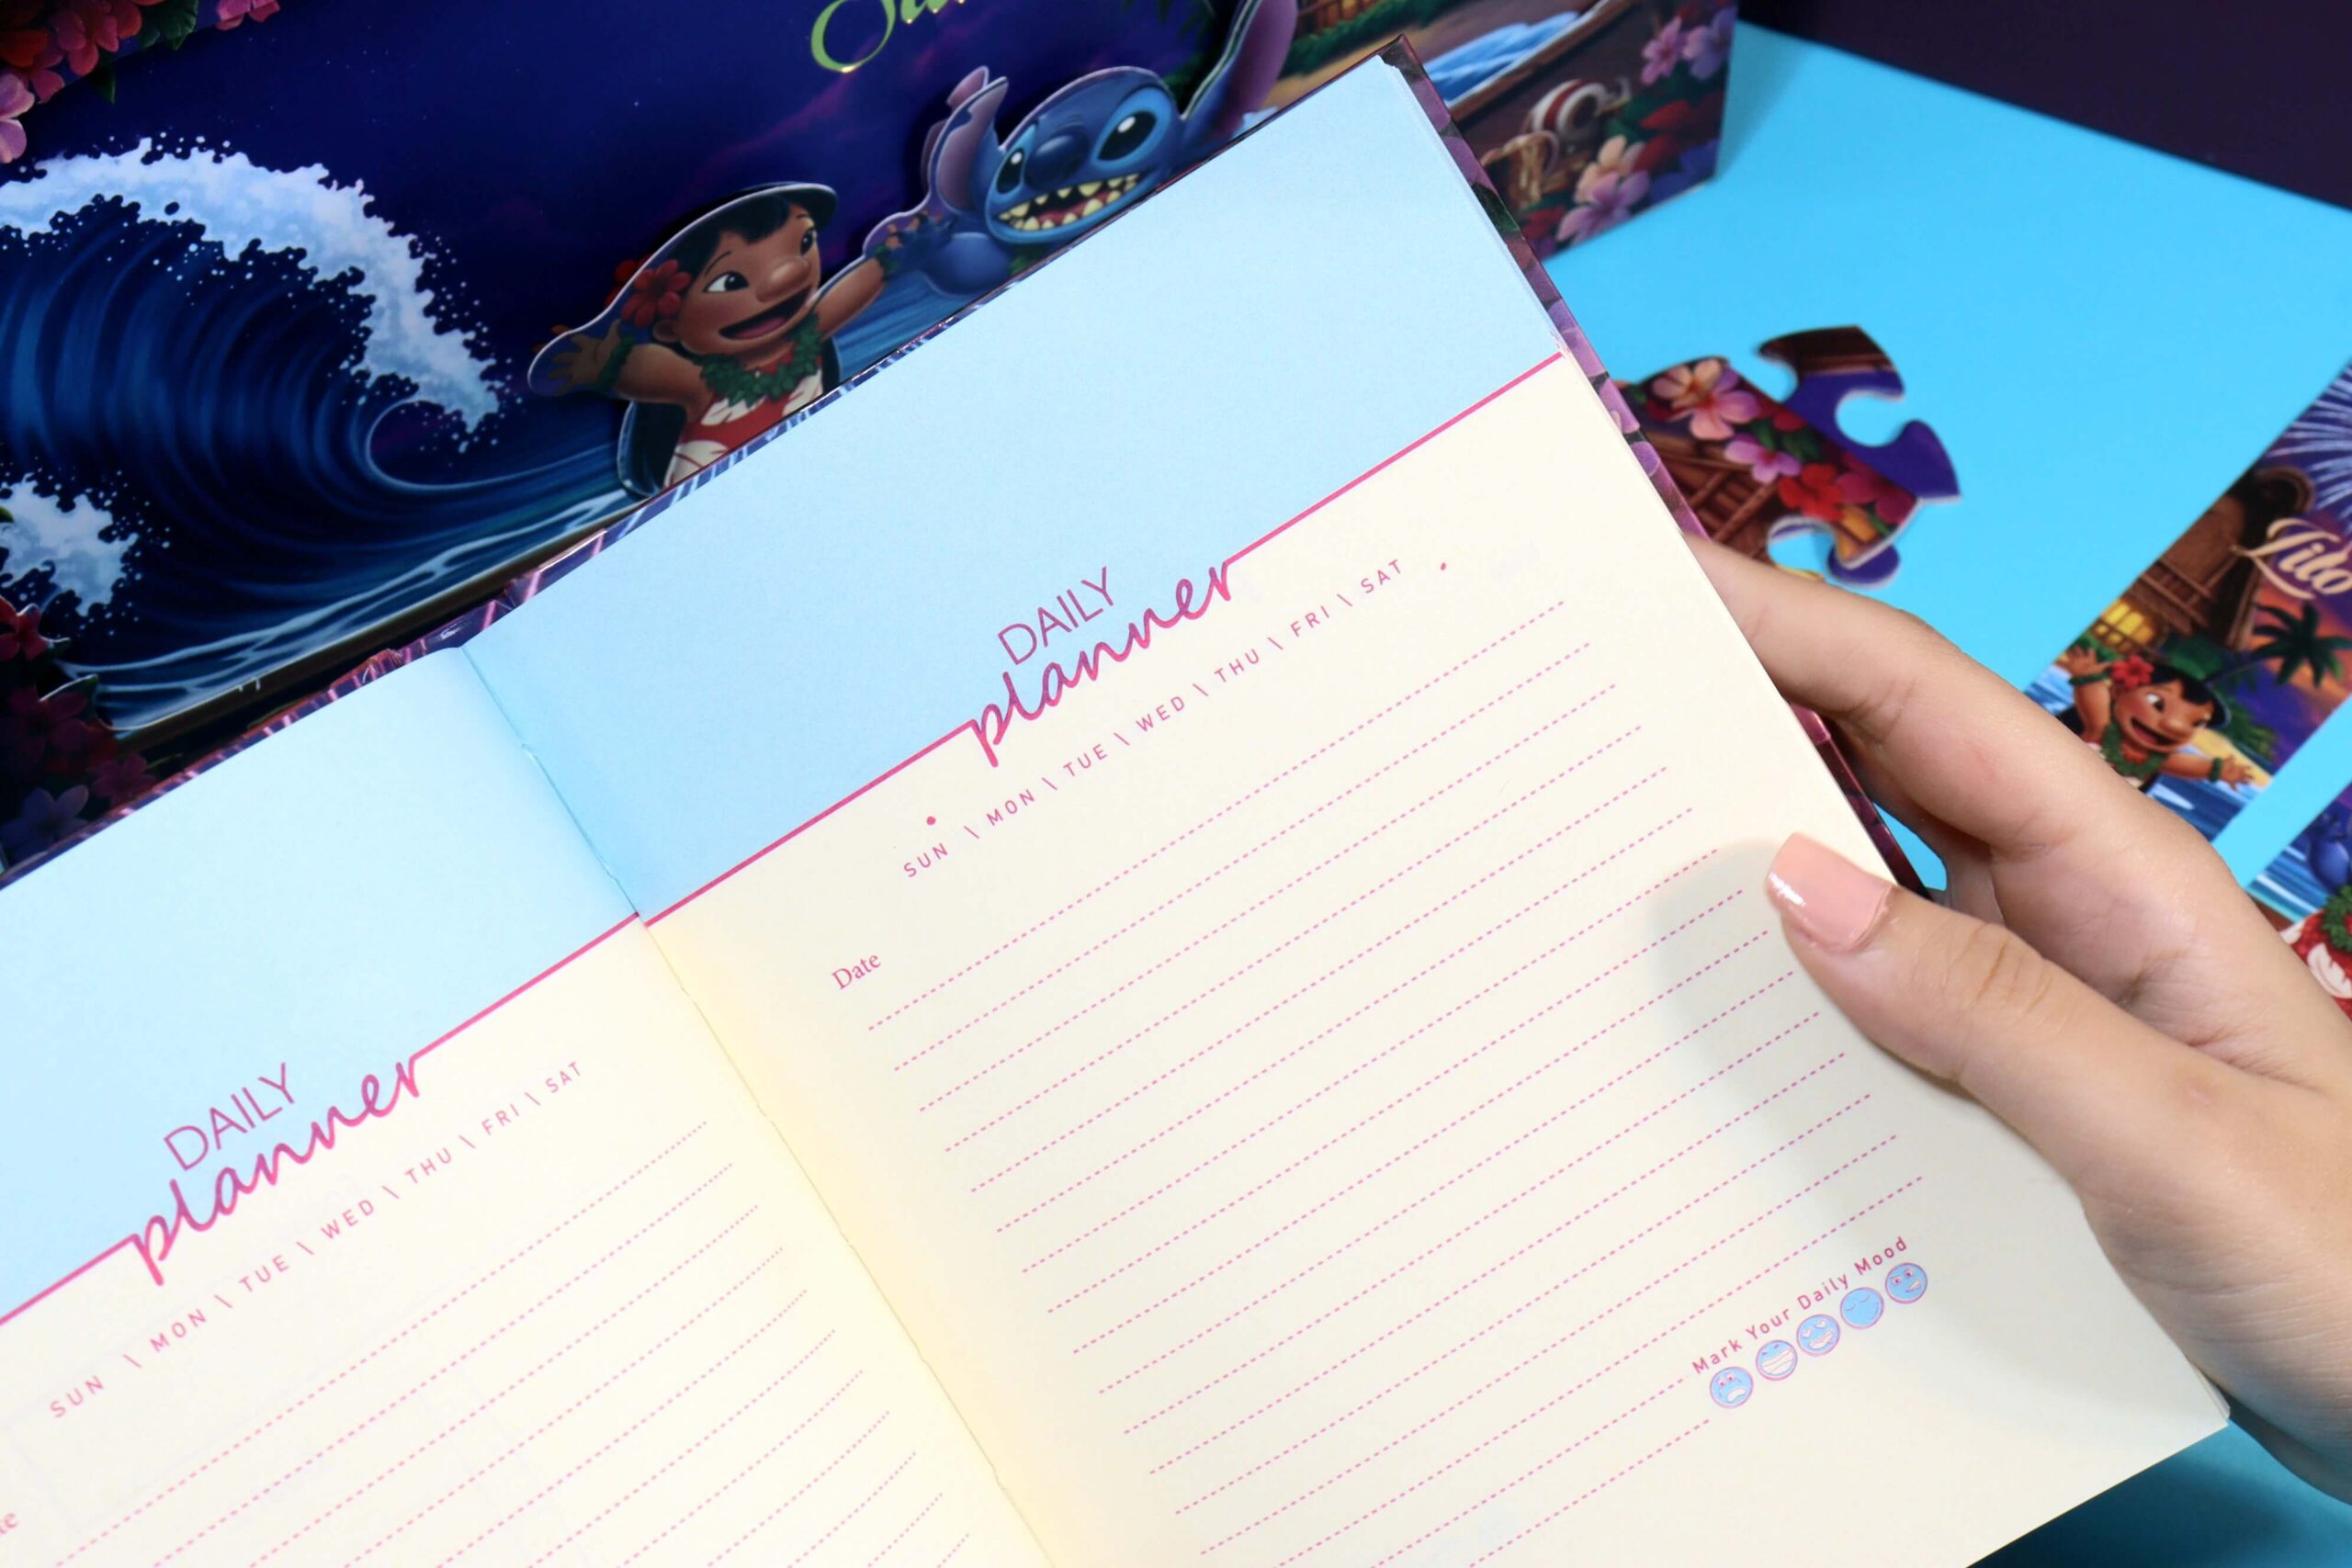 DAILY
planner
SUN \ MON \ TUE \ WED \ THU \ FRI \ SAT
DAILY
planner
SUN \ MON \ TUE \ WED \ THU \ FRI \ SAT
Date
Mark Your Daily Mood
Lilo